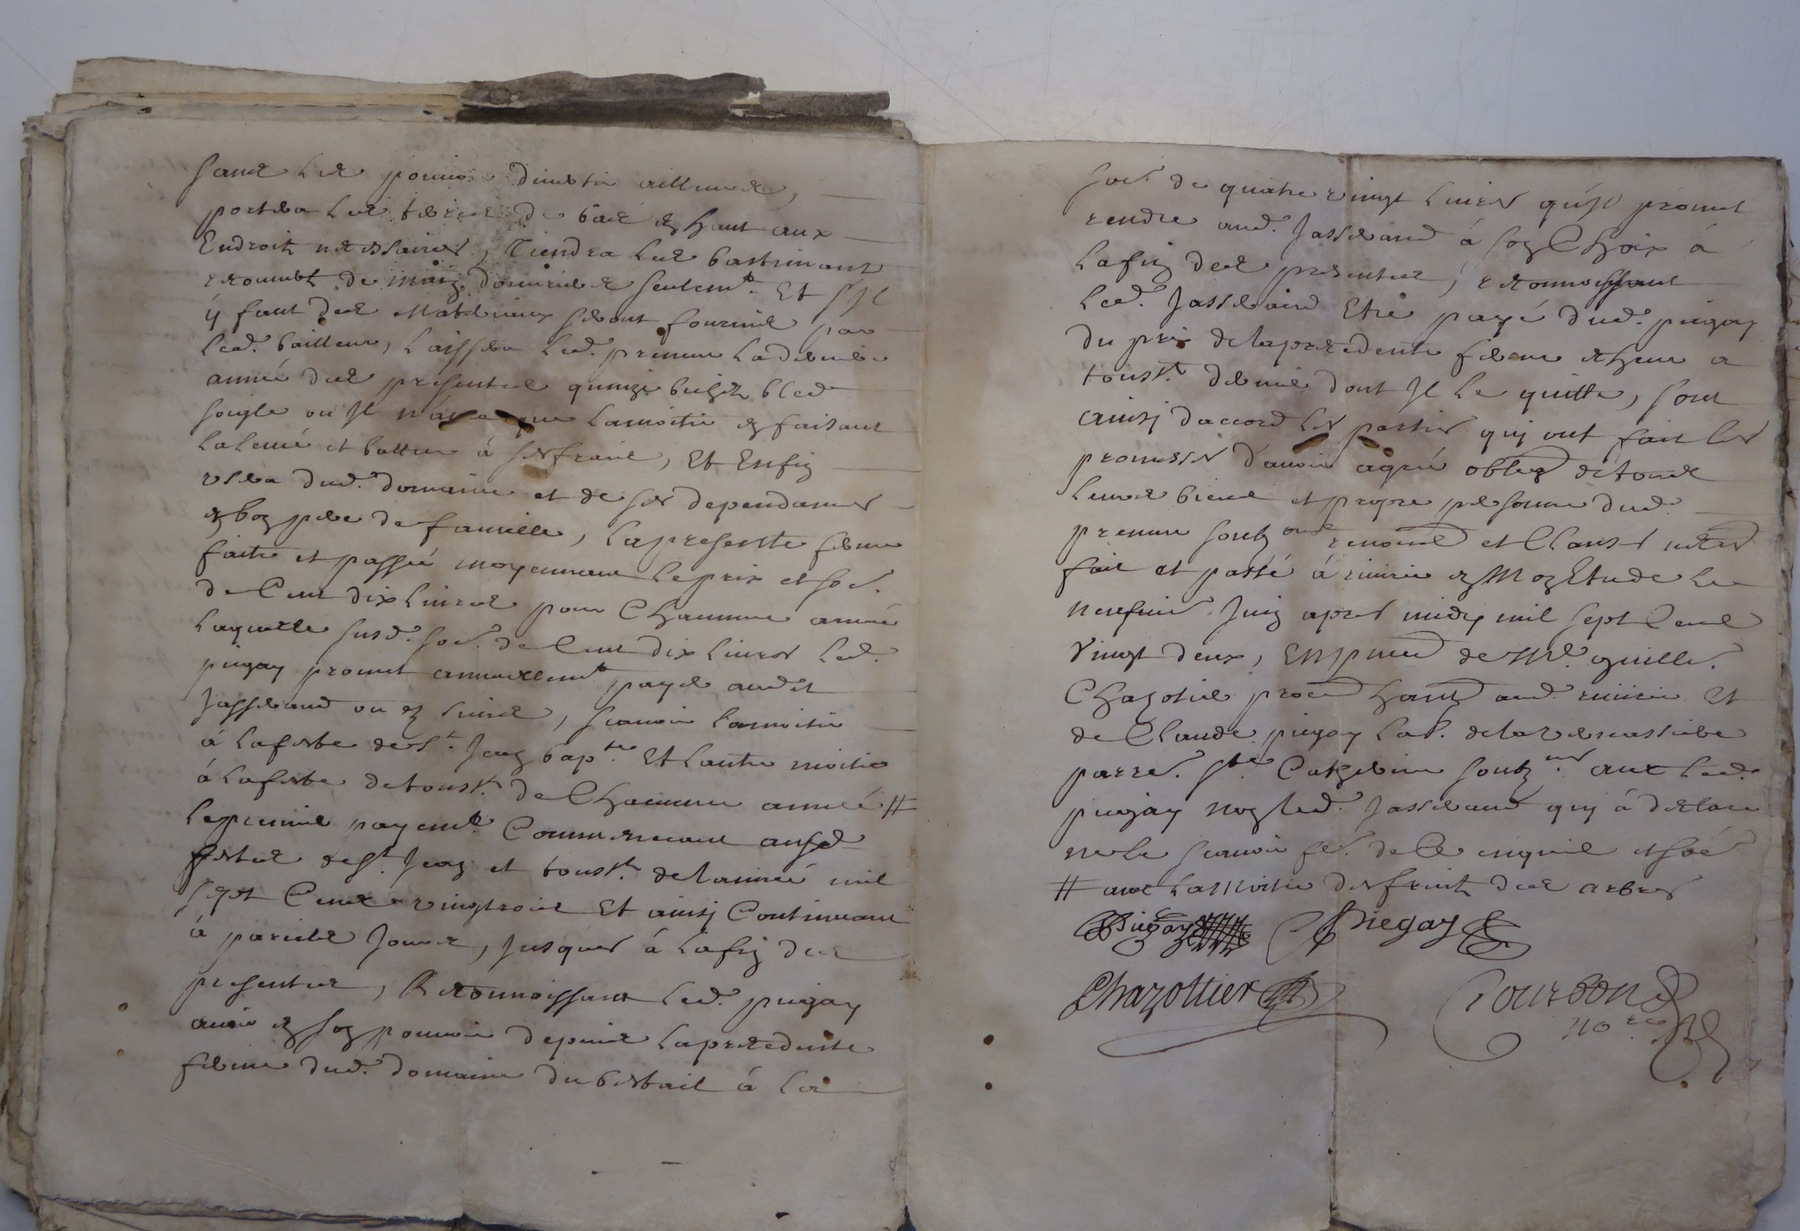 sans les pouvoir divertir ailleurs,
portera les terres de bas en haut aux
Endroits necessaires, Tiendra les bastimant
recouvert de main douvrier seulemt. Et s'il
y faut des Materiaux seront fournis par
led. bailleur, Laissera led. preneur la derniere
année des presentes quinze bichets bled
seigle ou Il n'aura que Lamoitié en faisant
La levé et battre à ses fraix, Et Enfin
usera dud. domaine et de ses dependances
en bon pere de famille, La presente ferme
faite et passée moyennant Le prix et some.
de Cent dix Livres pour Chacunne année
Laquelle susd. some. de Cent dix Livres Led.
piegay promet annuellemt. payer audit
Jasserand ou es siens, scavoir Lamoitié
à Lafeste de St. Jean bapte. Et Lautre moitié
à Lafeste de touss.ts de Chacunne année #
Le premier payemt. Commencant ausd.
festes de St. Jean et touss.ts de Lannée mil
sept Cents vingtrois Et ainsi Continuant
à pareils Jours, jusques à Lafin des
presentes, Reconnoissant Led. piegay
avoir en son pouvoir depuis Laprecedente
ferme dud. domaine du bestail à La
some. de quatre vingt Livres qu'il promet
rendre aud. Jasserand à son Choix à
Lafin des presentes, reconnoissant
Led. Jasserand Etre payé dud. piegay
du prix de la precedente ferme echeue a
touss.ts dernié dont Il Le quitte, sont
ainsi daccord Les parties qui ont fait les
promesses d'avoir agreé oblign. de tous
Leurs biens et propre personne dud.
preneur soubz renond. et Clauses
fait et passé à riverie en Mon Etude Le
neufvie. Juin apres midy mil sept Cens
Vingt deux, En pnce de Me. guille.
Chazotier procr. aud. riverie Et
de Claude piegay Lab. de la
parre. Ste. Catherine soubz.nes avec Led.
piegay non Led. Jasserand qui à declaré
ne Le scavoir fe. de Ce enquis et
# avec La moitié des fruits des arbres
Piegay Piegay
Chazottier Gourdon
no.re